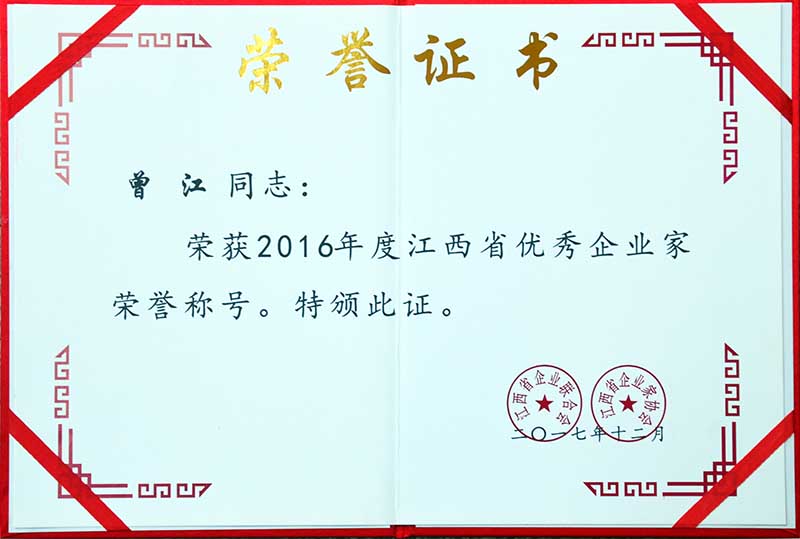 荣誉证书
曾 江 同志：
荣获2016年度江西省优秀企业家
荣誉称号。特颁此证。
江西省企业联合会
江西省企业家协会
二〇一七年十二月